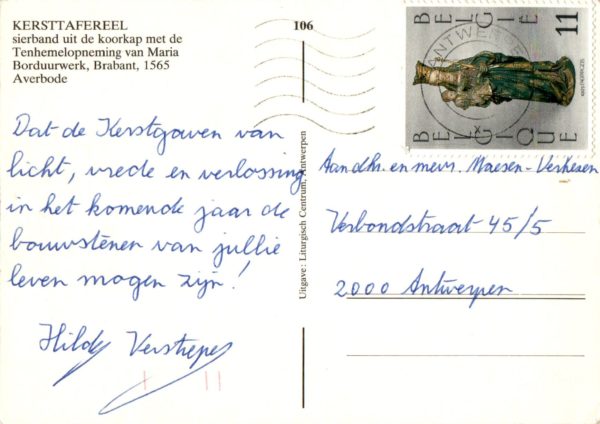 KERSTTAFEREEL
sierband uit de koorkap met de
Tenhemelopneming van Maria
Borduurwerk, Brabant, 1565
Averbode
106
Dat de Kerstgaven van
licht, vrede en verlossing
in het komende jaar de
bouwstenen van jullie
leven mogen zijn!
Hilde Verstrepen
Uitgave: Liturgisch Centrum, Antwerpen
ANTWERPEN
BELGIE
BELGIQUE
11
Aan dhr. en mevr. Maesen-Verhesen
Verbondstraat 45/5
2000 Antwerpen